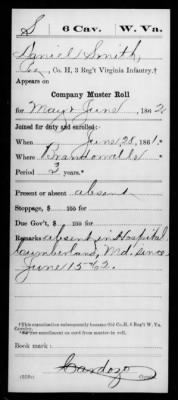 S | 6 Cav. | W. Va.
Daniel Smith,
Co. H, 3 Reg't Virginia Infantry.†
Appears on
Company Muster Roll
for May & June, 1862
Joined for duty and enrolled:
When June 28, 1861.
Where Brandonville
Period 3 years.*
Present or absent absent
Stoppage, $ 100 for
Due Gov't, $ 100 for
Remarks absent in Hospital
Cumberland, Md. since
June 15/62.
†This organization subsequently became
Cavalry.
*See enrollment on card from muster-in roll.
Book mark:
Cardozo
Copyist.